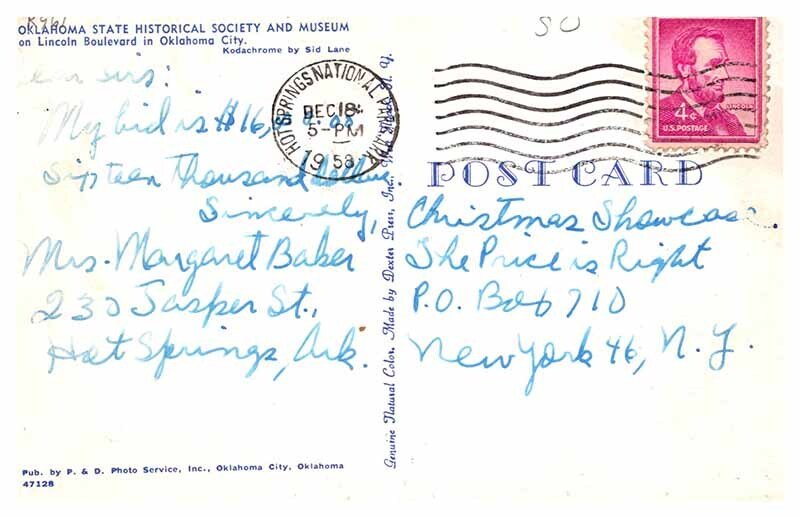 OKLAHOMA STATE HISTORICAL SOCIETY AND MUSEUM
on Lincoln Boulevard in Oklahoma City.
Kodachrome by Sid Lane
Dear sirs:
My bid is $16,
Sixteen Thousand dollars.
Sincerely,
Mrs. Margaret Baker
230 Jasper St.,
Hot Springs, Ark.
Pub. by P. & D. Photo Service, Inc., Oklahoma City, Oklahoma
47128
Genuine Natural Color. Made by Dexter Press, Inc., N. Y.
HOT SPRINGS NATIONAL PARK ARK.
DEC 18
5-PM
1958
4¢
LINCOLN
U.S. POSTAGE
POST CARD
Christmas Showcase
The Price is Right
P.O. Box 710
New York 46, N.Y.